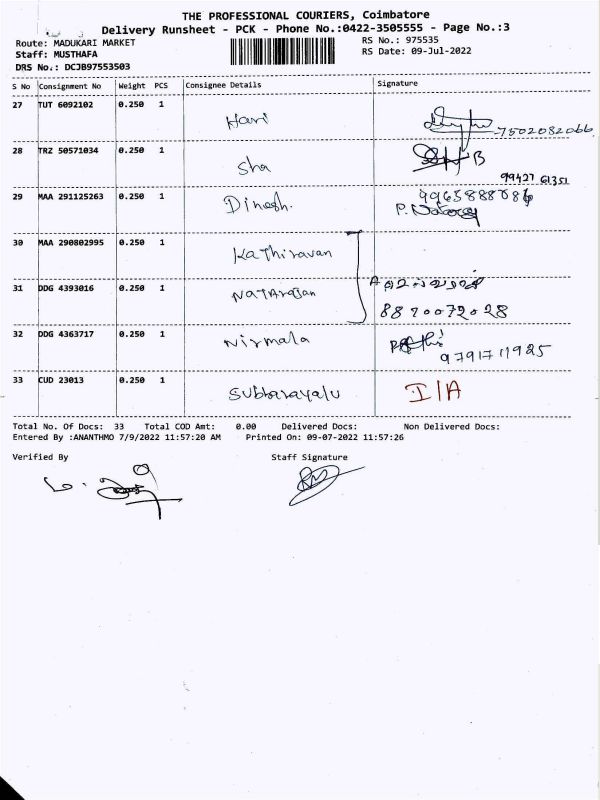 THE PROFESSIONAL COURIERS, Coimbatore
Delivery Runsheet - PCK - Phone No.:0422-3505555 - Page No.:3
Route: MADUKARI MARKET
RS No.: 975535
Staff: MUSTHAFA
RS Date: 09-Jul-2022
DRS No.: DCJB97553503
S No Consignment No Weight PCS Consignee Details Signature
27 TUT 6092102 0.250 1 Hari 7502082066
28 TRZ 50571034 0.250 1 Sha 99427 61351
29 MAA 291125263 0.250 1 Dinesh.
30 MAA 290802995 0.250 1 Kathiravan
31 DDG 4393016 0.250 1 Natarajan
8870072028
32 DDG 4363717 0.250 1 Nirmala
9791711925
33 CUD 23013 0.250 1 Subbarayalu I/A
Total No. Of Docs: 33 Total COD Amt: 0.00 Delivered Docs: Non Delivered Docs:
Entered By :ANANTHMO 7/9/2022 11:57:20 AM Printed On: 09-07-2022 11:57:26
Verified By Staff Signature